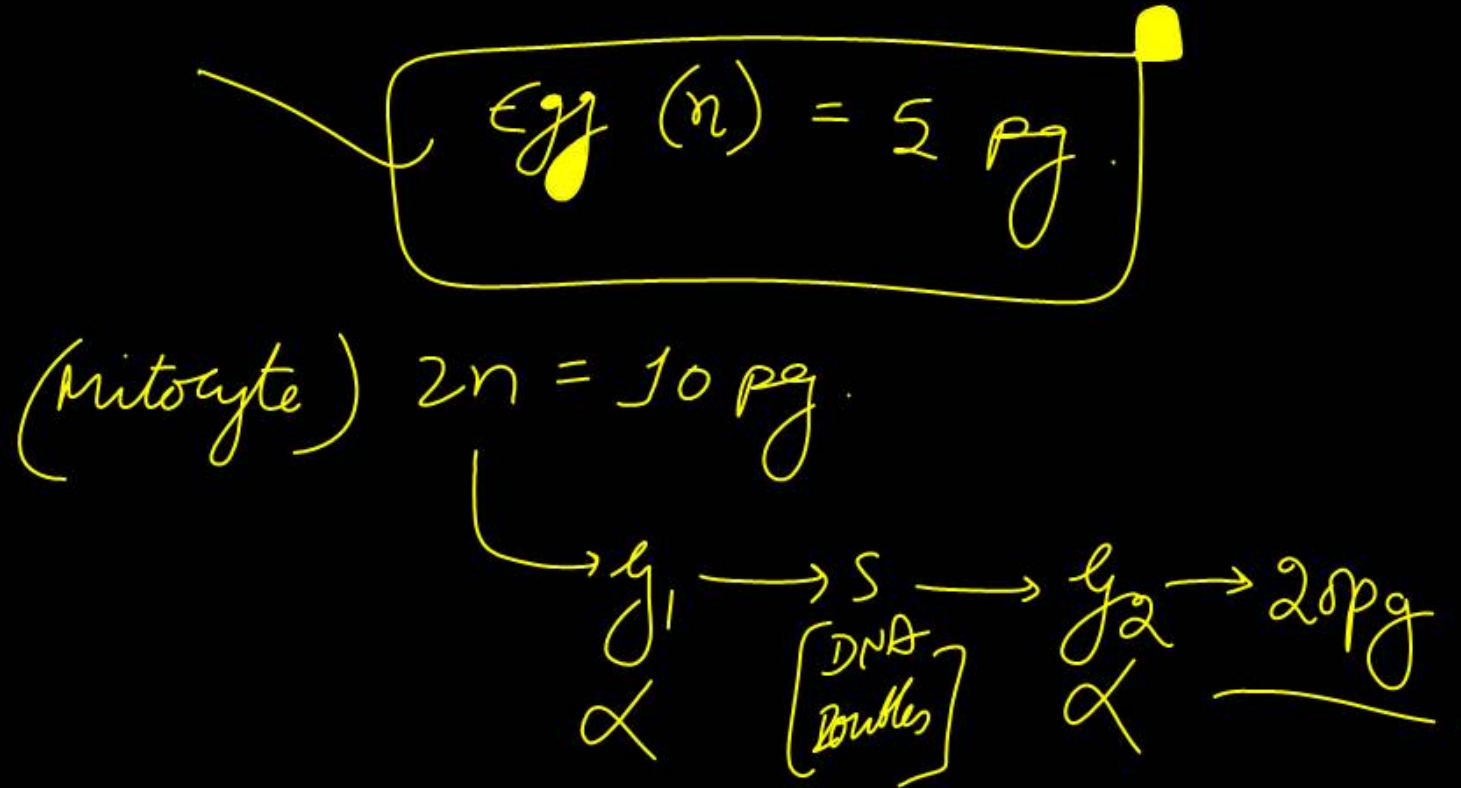 Egg (n) = 5 pg.
(Mitocyte) 2n = 10 pg.
→ G1 → S → G2 → 20pg
x [DNA Doubles] x